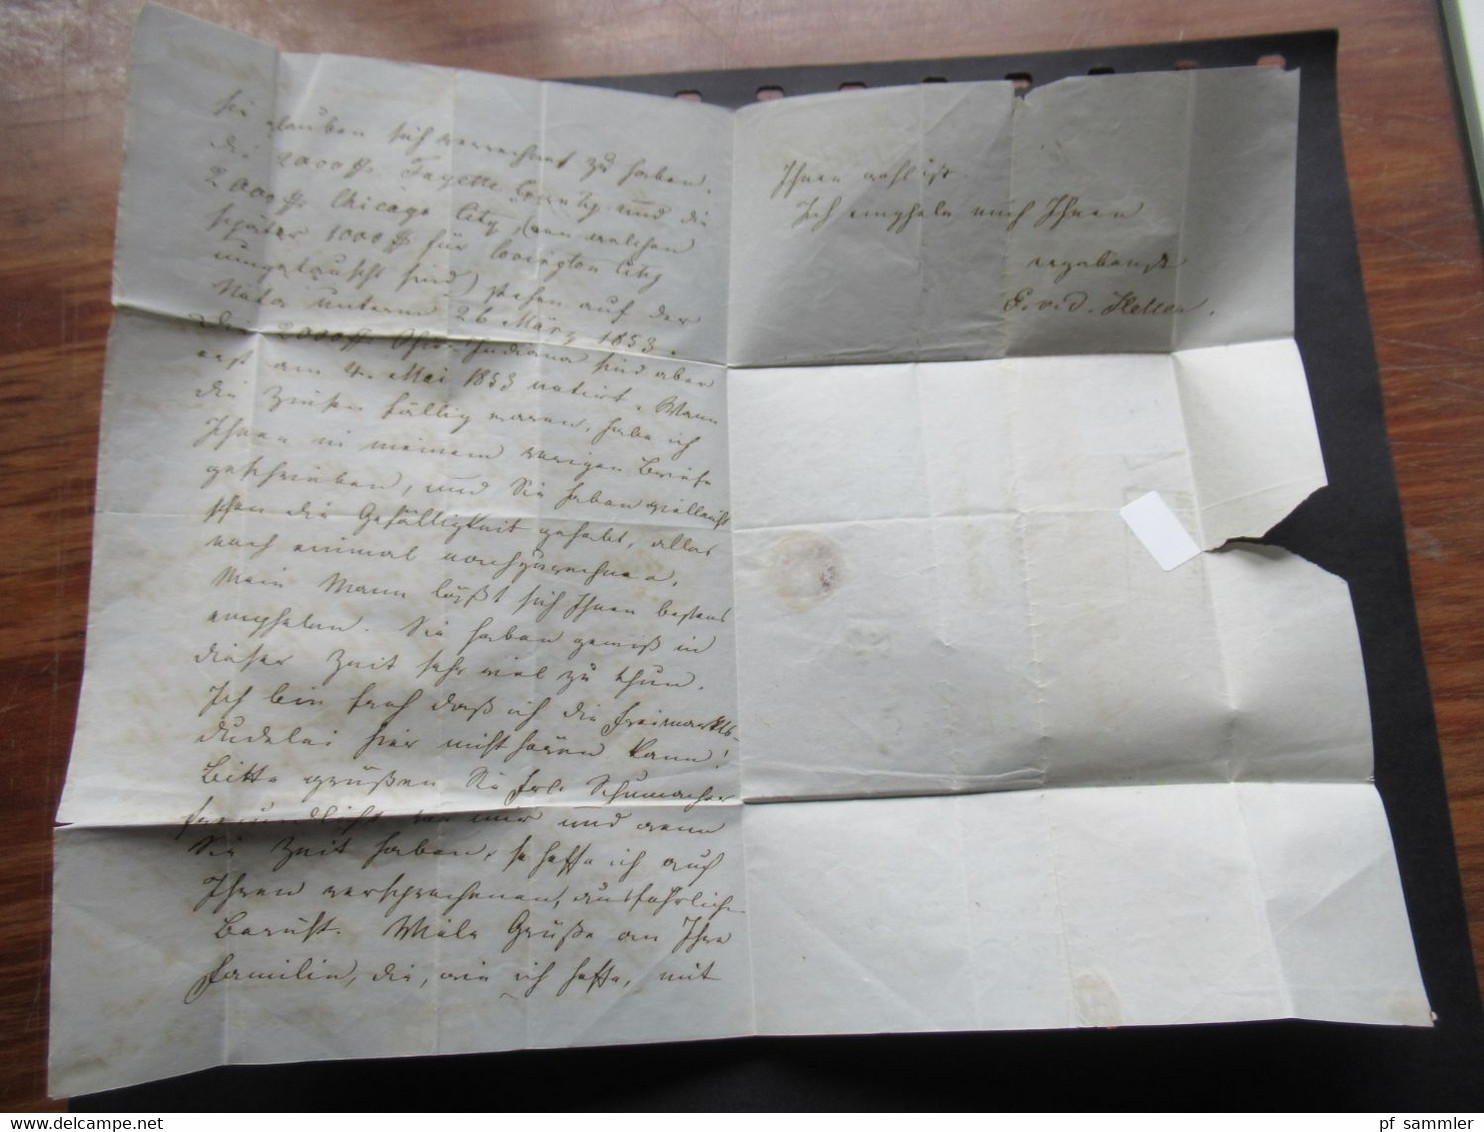 Sie glauben sich verrechnet zu haben.
Die 2000 $ Fayette County und die
2000 $ Chicago City, (von welchen
später 1000 $ für Covington City
umgetauscht sind) stehen auf der
Nota unterm 26 März 1853.
Die 2000 $ Ohio Indiana sind aber
erst am 4. Mai 1853 notirt. Wann
die Zinsen fällig waren, habe ich
Ihnen in meinem vorigen Briefe
geschrieben, und Sie haben vielleicht
schon die Gefälligkeit gehabt, alles
noch einmal nachzurechnen.
Mein Mann läßt sich Ihnen bestens
empfehlen. Sie haben gewiß in
dieser Zeit sehr viel zu thun.
Ich bin froh daß ich die Freimarkts-
dudelei hier nicht hören kann!
Bitte grüßen Sie Frl. Schumacher
freundlichst von mir und wenn
Sie Zeit haben, so hoffe ich auf
Ihren versprochenen, ausführlichen
Bericht. Viele Grüße an Ihre
Familie, die, wie ich hoffe, mit
Ihnen wohl ist.
Ich empfehle mich Ihnen
ergebenst
E. v. d. Hellen.
pf sammler